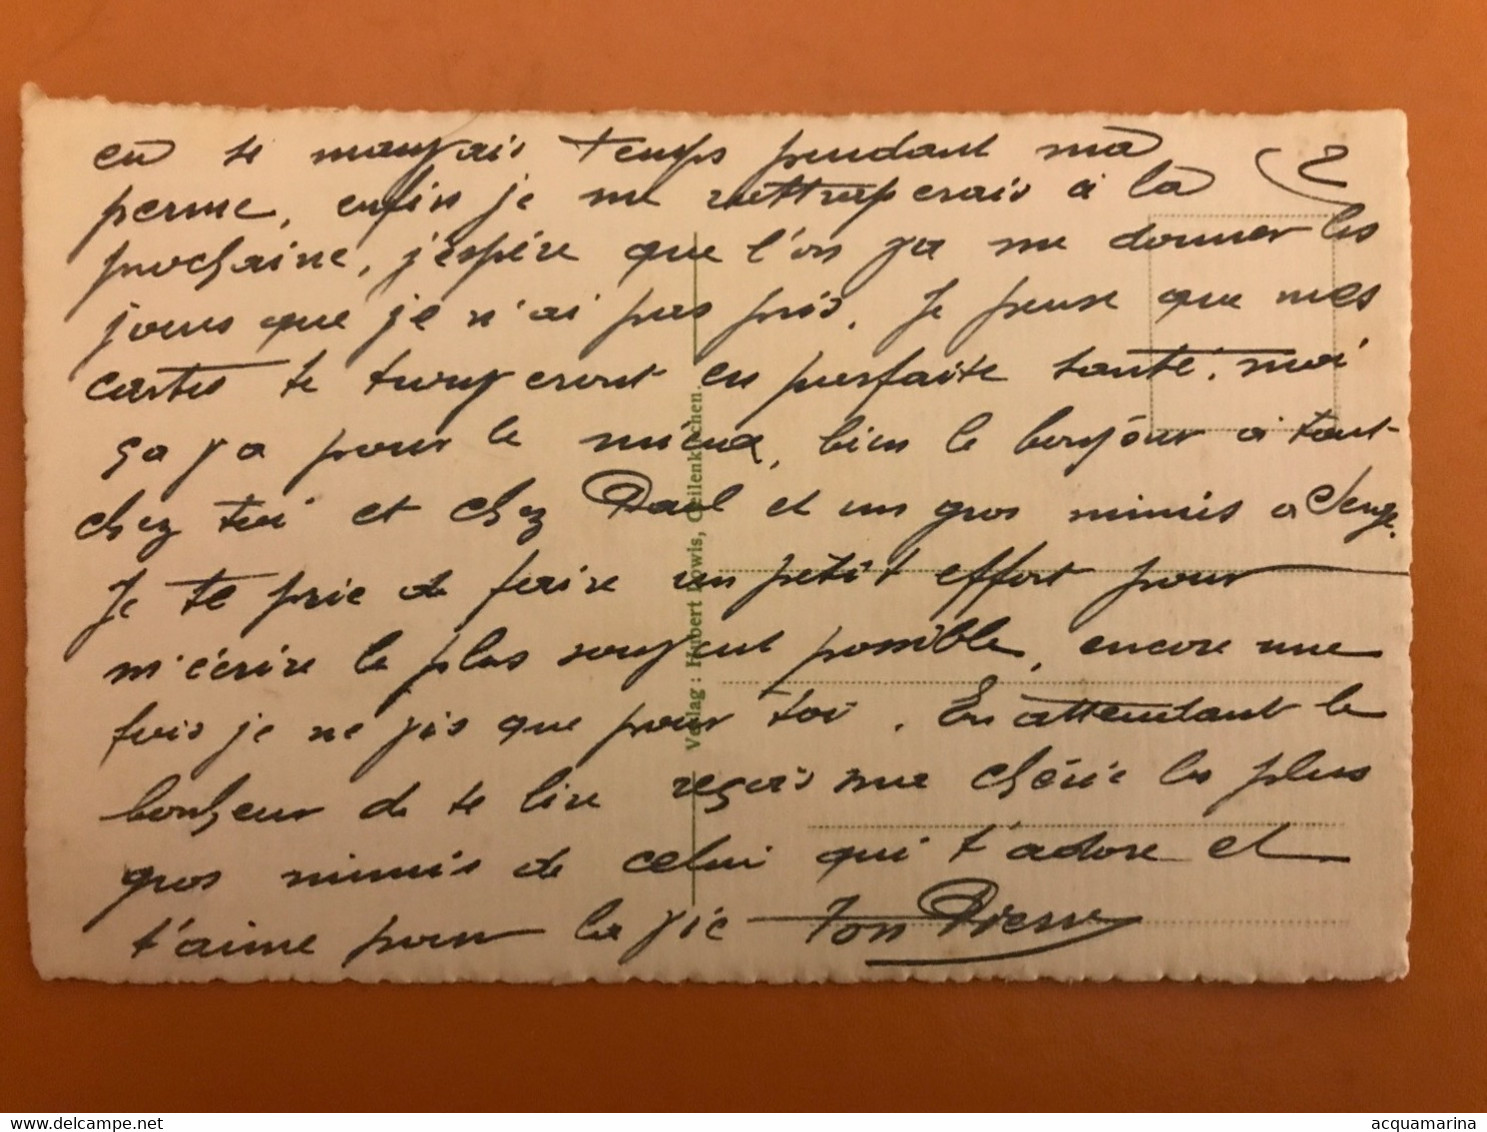 2
eu se mauvais temps pendant ma
perme, enfin je me rattraperais à la
prochaine, j'espère que l'on va me donner les
jours que je n'ai pas pris. Je pense que mes
cartes te trouveront en parfaite santé, moi
ça va pour le mieux, bien le bonjour a tout
chez toi et chez Paul et un gros mimis a
Je te prie de faire un petit effort pour
m'écrire le plus souvent possible, encore une
fois je ne vis que pour toi. En attendant le
bonheur de te lire reçois mue chérie les plus
gros mimis de celui qui t'adore et
t'aime pour la vie Ton Pierre
Verlag: Hubert Lewis, Geilenkirchen.
acquamarina